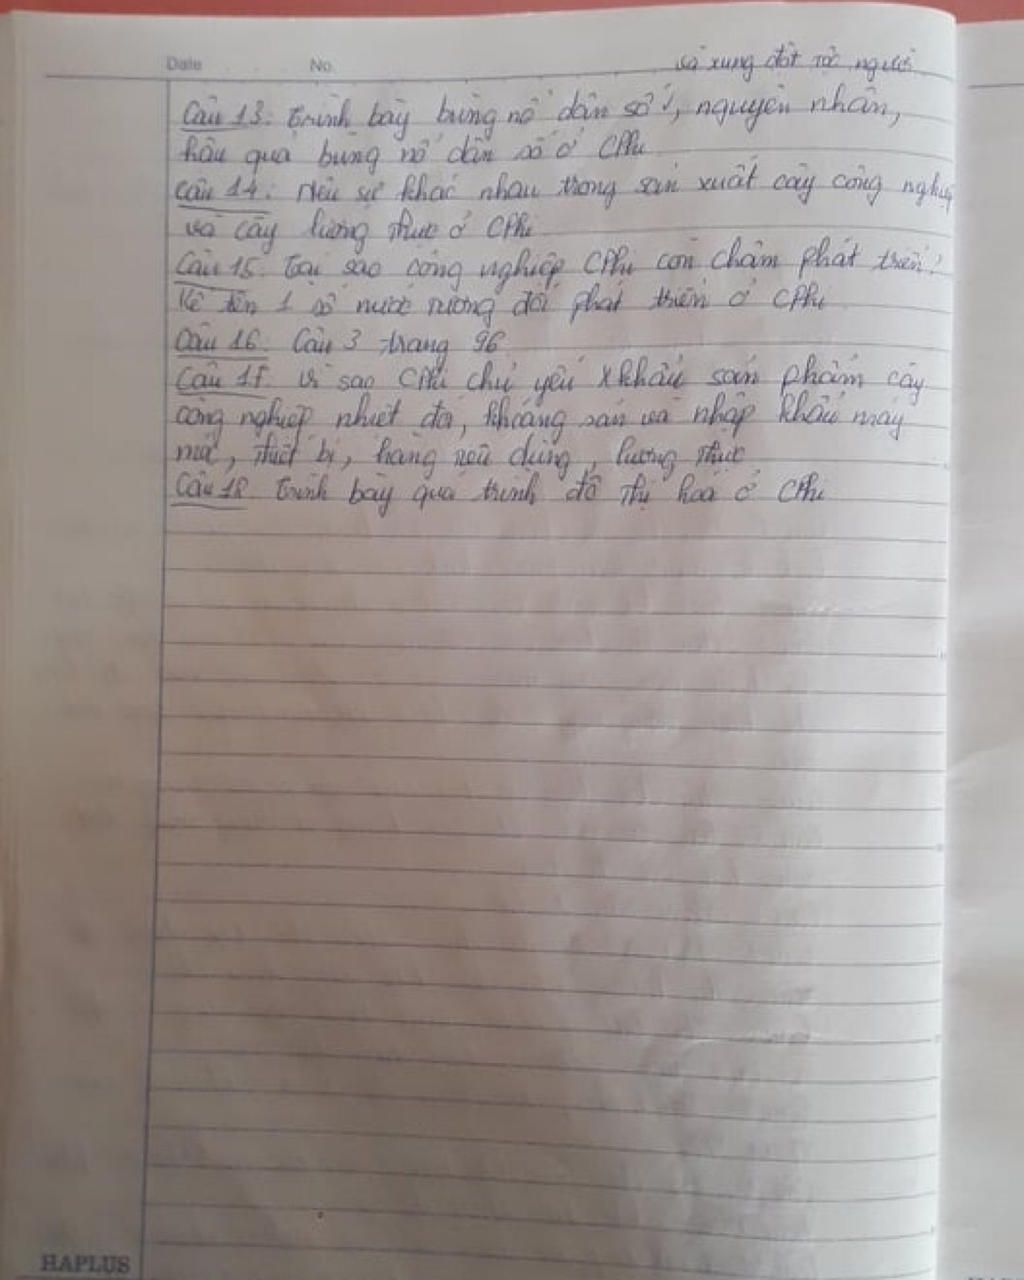 Date No.
và xung đột tộc người
Câu 13: Trình bày bùng nổ dân số, nguyên nhân,
hậu quả bùng nổ dân số ở CPhi
Câu 14: Nêu sự khác nhau trong sản xuất cây công nghiệp
và cây lương thực ở CPhi
Câu 15. Tại sao công nghiệp CPhi còn chậm phát triển?
Kể tên 1 số nước tương đối phát triển ở CPhi
Câu 16. Câu 3 trang 96
Câu 17. Vì sao CPhi chủ yếu xkhẩu sản phẩm cây
công nghiệp nhiệt đới, khoáng sản và nhập khẩu máy
móc, thiết bị, hàng tiêu dùng, lương thực
Câu 18. Trình bày quá trình đô thị hoá ở CPhi
HAPLUS